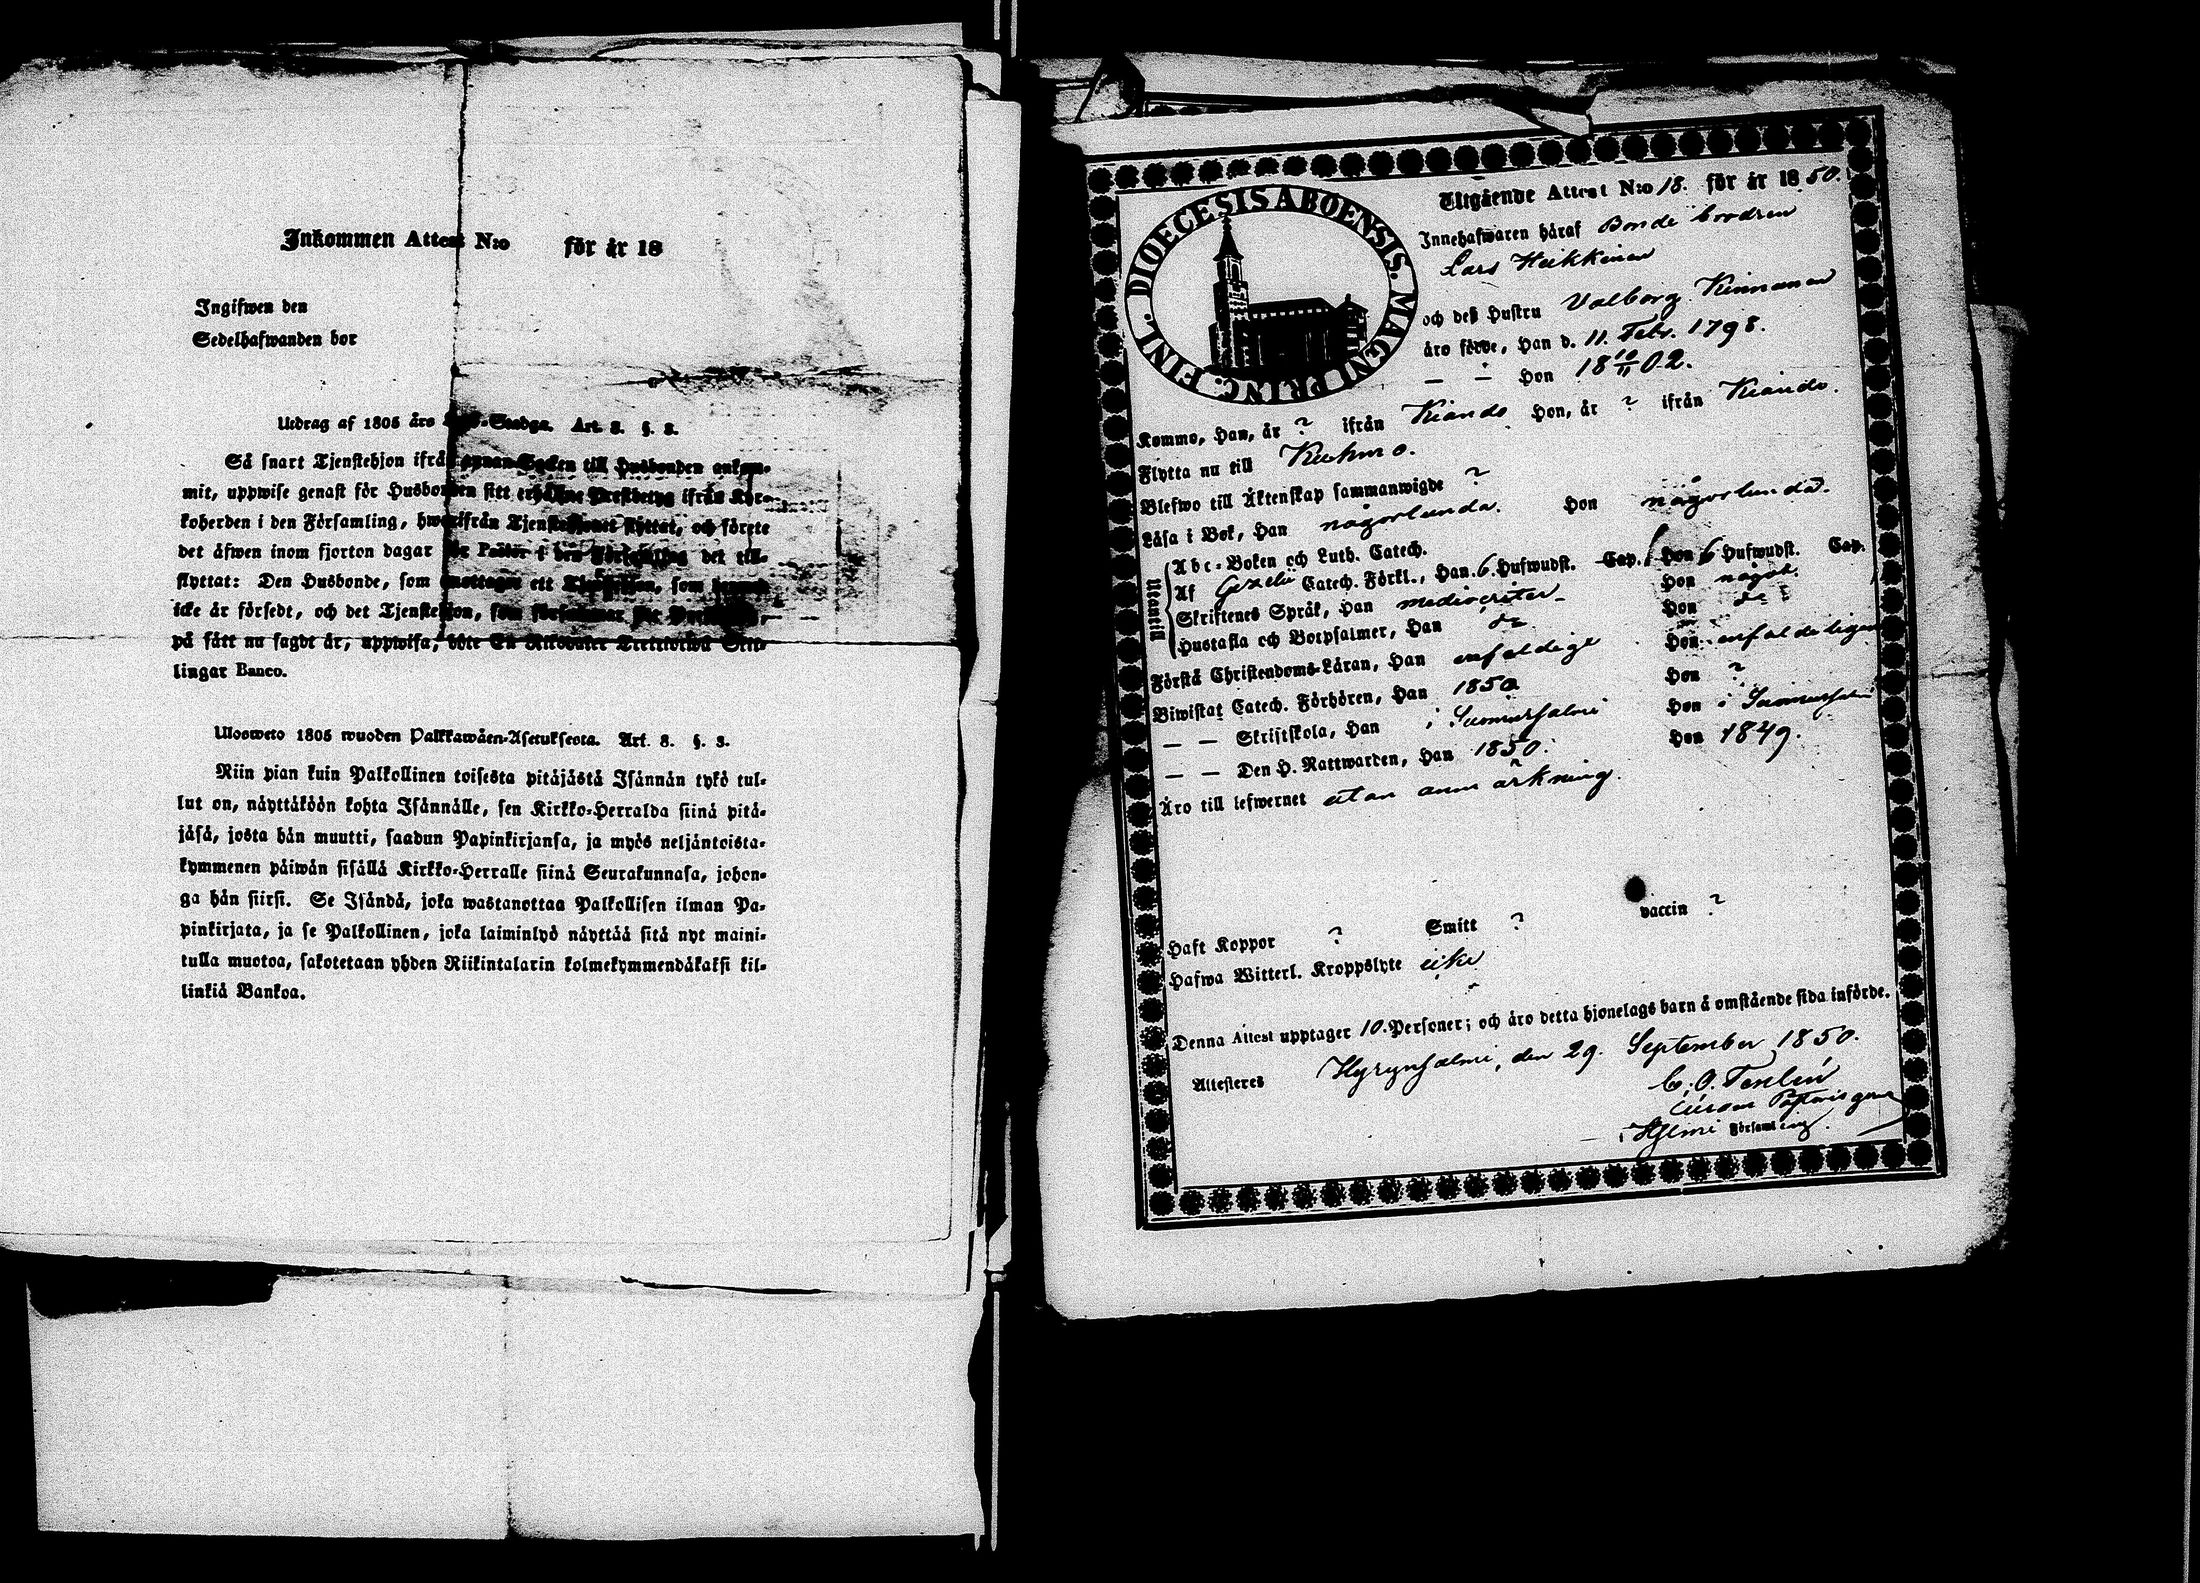 Inkommen Attest N:o för år 18
Ingifwen den
Sedelhafwanden bor
Utdrag af 1805 års Lego-Stadga. Art. 8. §. 3.
Så snart Tjenstehjon ifrån annan Socken till Husbonden ankom-
mit, uppwise genast för Husbonden sitt erhållne Prestbetyg ifrån Kyr-
koherden i den Församling, hwarifrån Tjenstehjonet flyttat, och förete
det äfwen inom fjorton dagar för Pastor i den Församling det till-
flyttat: Den Husbonde, som mottager ett Tjenstehjon, som dermed
icke är försedt, och det Tjenstehjon, som försummar
på sätt nu sagdt är, uppwisa, böte En Riksdaler Trettiotwå Skil-
lingar Banco.
Ulosweto 1805 wuoden Palkkawäen-Asetuksesta. Art. 8. §. 3.
Niin pian kuin Palkollinen toisesta pitäjästä Isännän tykö tul-
lut on, näyttäköön kohta Isännälle, sen Kirkko-Herralda siinä pitä-
jäsä, josta hän muutti, saadun Papinkirjansa, ja myös neljäntoista-
kymmenen päiwän sisällä Kirkko-Herralle siinä Seurakunnasa, johon-
ga hän siirsi. Se Isändä, joka wastanottaa Palkollisen ilman Pa-
pinkirjata, ja se Palkollinen, joka laiminlyö näyttää sitä nyt maini-
tulla muotoa, sakotetaan yhden Riikintalarin kolmekymmendäkaksi kil-
linkiä Bankoa.
DIOECESIS ABOENSIS. MAGNI PRINC. FINL.
Utgående Attest N:o 18. för år 1850.
Innehafwaren häraf Bonde
Lars Heikkinen
och deß Hustru Valborg Kinnunen
äro födde, Han d. 11. Febr. 1798.
— — Hon 18 10/11 02.
Komne, Han, år ? ifrån Kiando Hon, år ? ifrån Kiando.
Flytta nu till Kuhmo.
Blefwo till Äktenskap sammanwigde ?
Läsa i Bok, Han någorlunda. Hon någorlunda.
Utantill
Abc-Boken och Luth. Catech.
Af Gezelii Catech. Förkl., Han 6. Hufwudst. Cap. Hon 6 Hufwudst. Cap.
Skriftenes Språk, Han mediocriter Hon något.
Hustafla och Botpsalmer, Han do Hon do
Förstå Christendoms-Läran, Han enfaldige Hon enfaldeligen
Biwistat Catech. Förhören, Han 1850 Hon ?
— — Skriftskola, Han i Suomussalmi Hon i Suomussalmi
— — Den H. Nattwarden, Han 1850. Hon 1849.
Äro till lefwernet utan anmärkning.
Haft Koppor ? Smitt ? vaccin ?
Hafwa Witterl. Kroppslyte icke
Denna Attest upptager 10. Personer; och äro detta hjonelags barn å omstående sida införde.
Attesteres Hyrynsalmi, den 29. September 1850.
C. O. Tenlén
i Hslmi Församling.